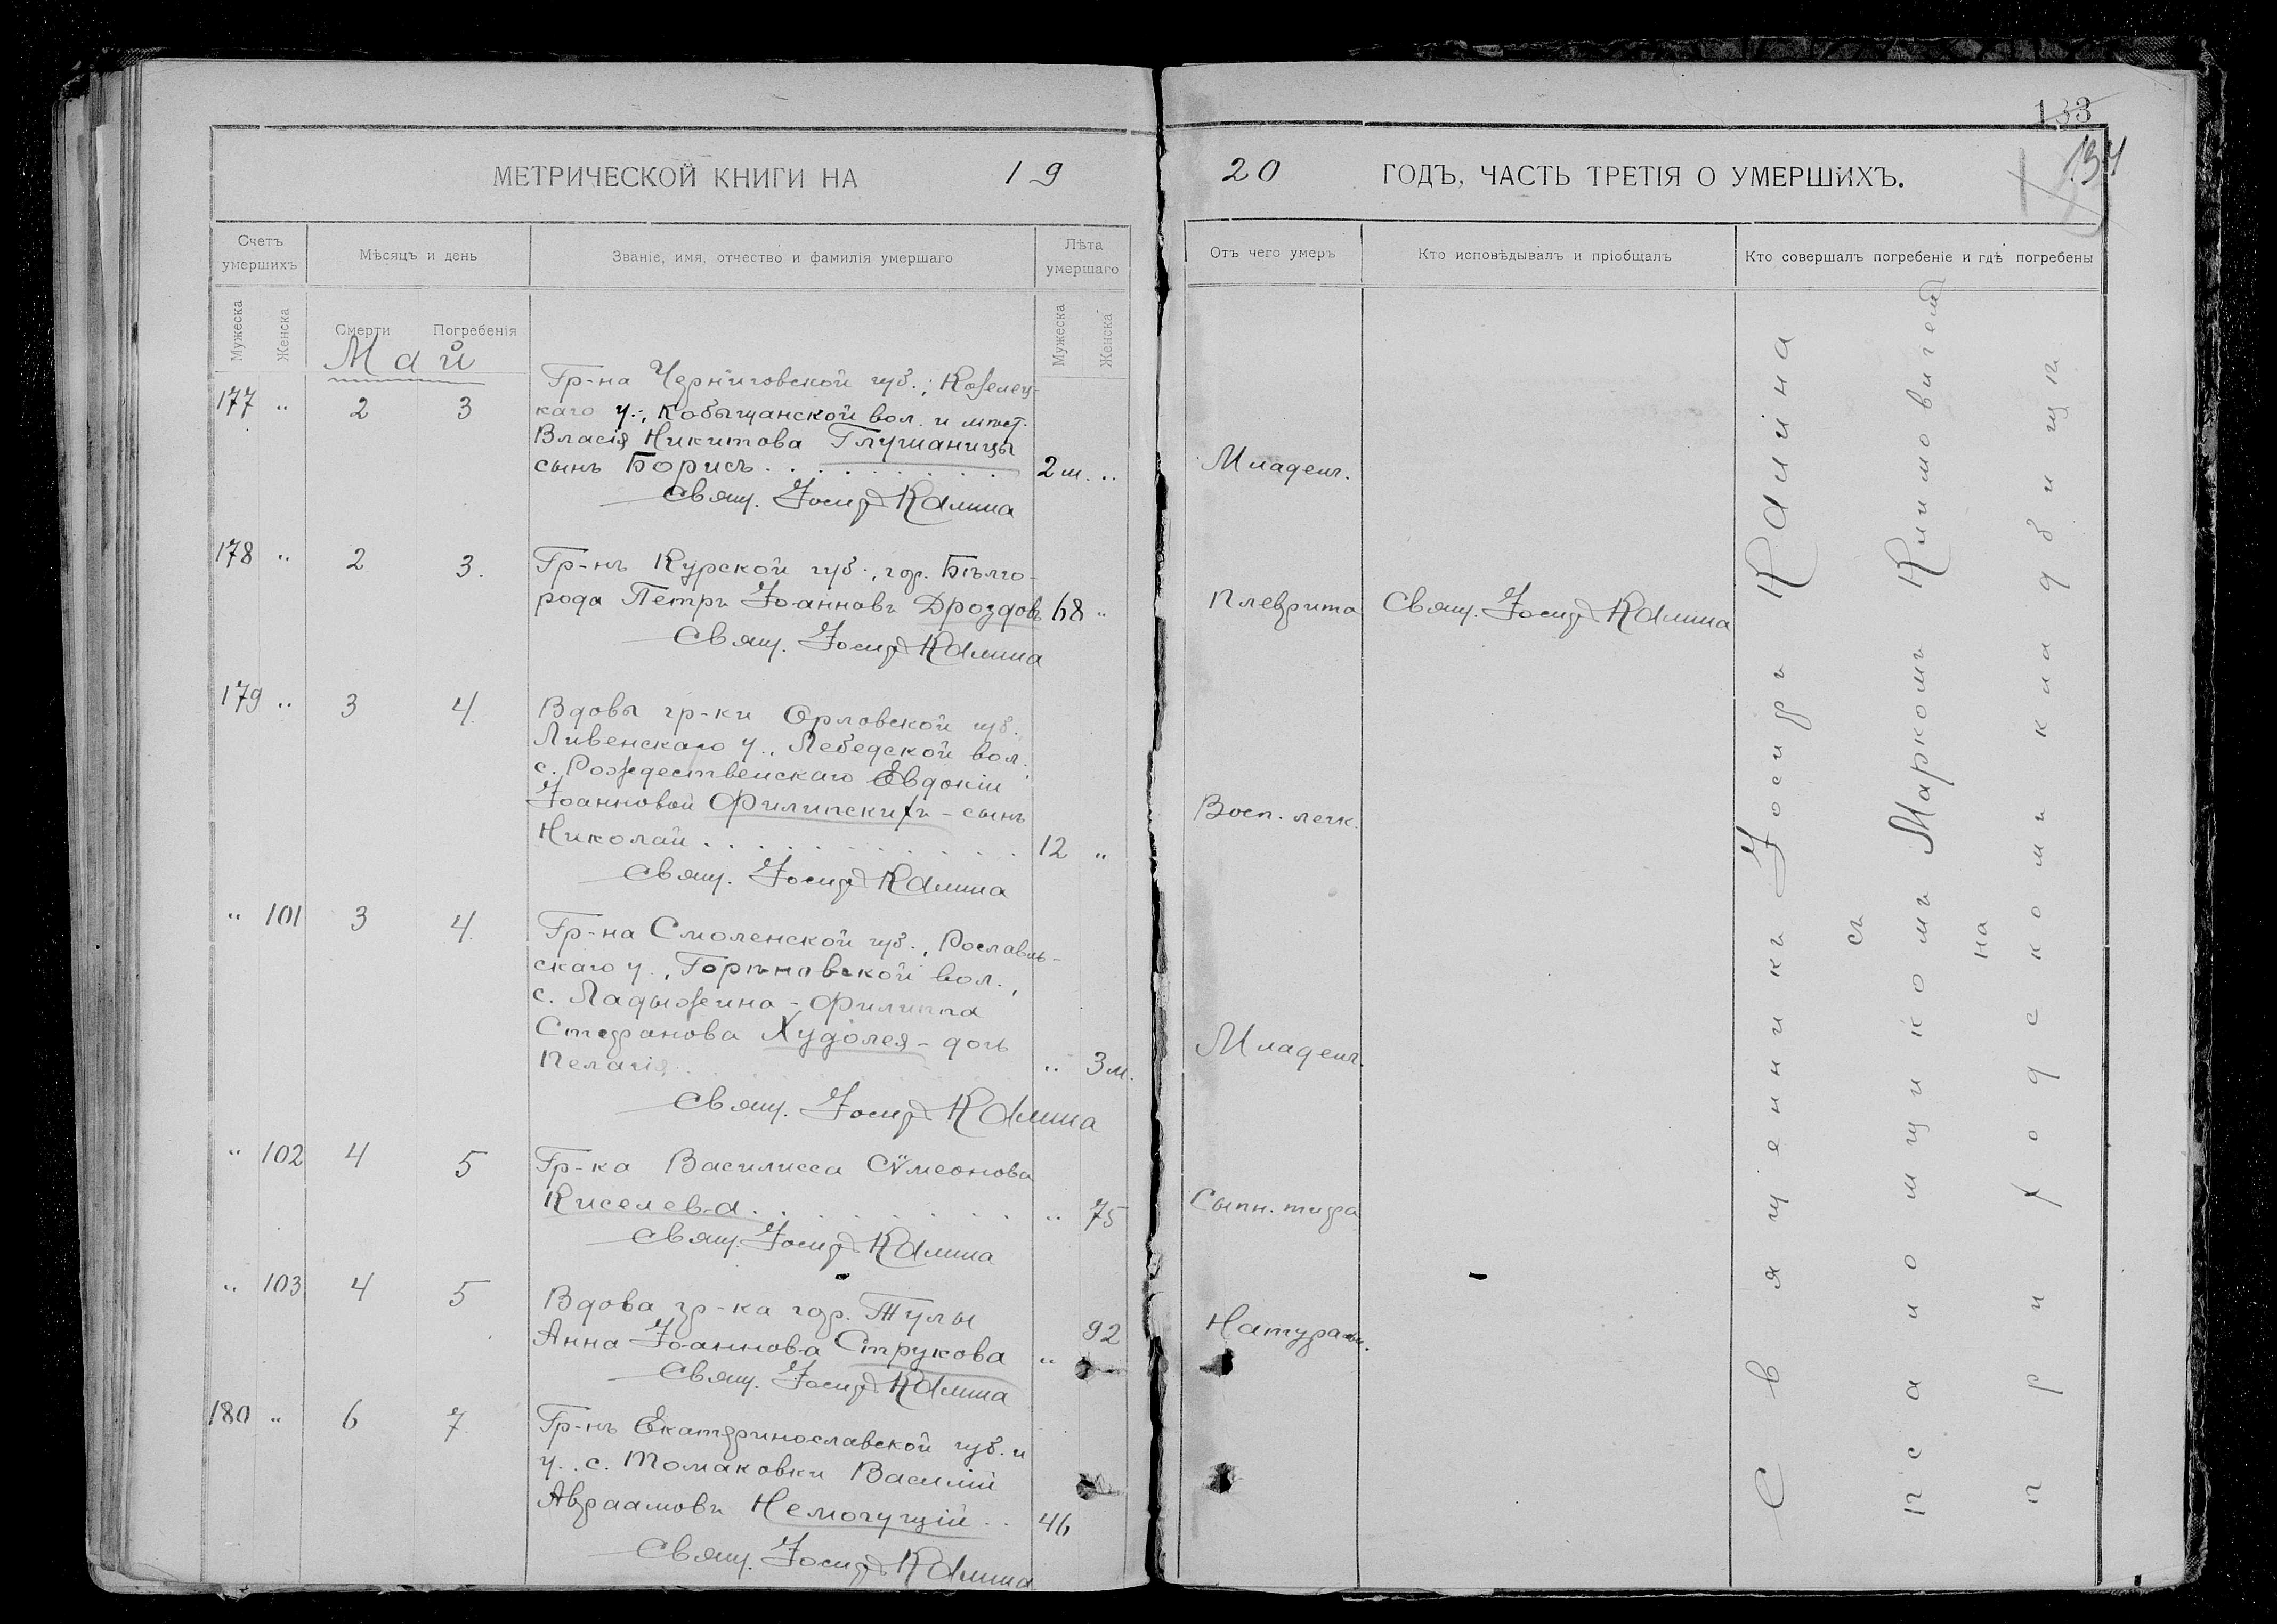 133
134
МЕТРИЧЕСКОЙ КНИГИ НА 19
20 ГОДЪ, ЧАСТЬ ТРЕТІЯ О УМЕРШИХЪ.
Счетъ умершихъ
Мѣсяцъ и день
Званіе, имя, отчество и фамилія умершаго
Лѣта умершаго
Отъ чего умеръ
Кто исповѣдывалъ и пріобщалъ
Кто совершалъ погребеніе и гдѣ погребены
Мужеска
Женска
Смерти
Погребенія
Мужеска
Женска
Май
177 " 2 3
Гр-на Черниговской губ., Козелец-
каго у., Кобыщанской вол. и мѣст.
Власія Никитова Глушаницы
сынъ Борисъ 2 м. "
Младенч.
Свящ. Іосифъ Калина
178 " 2 3.
Гр-нъ Курской губ., гор. Бѣлго-
рода Петръ Іоанновъ Дроздовъ 68 "
Плеврита
Свящ. Іосифъ Калина
Свящ. Іосифъ Калина
179 " 3 4.
Вдовы гр-ки Орловской губ.
Ливенскаго у., Лебедской вол.,
с. Рождественскаго Евдокіи
Іоанновой Филипскихъ - сынъ
Николай 12 "
Восп. легк.
Свящ. Іосифъ Калина
" 101 3 4.
Гр-на Смоленской губ., Рославль-
скаго у., Горѣновской вол.,
с. Ладыжина - Филиппа
Стефанова Худолея - дочь
Пелагія " 3 м.
Младенч.
Свящ. Іосифъ Калина
" 102 4 5
Гр-ка Василисса Сѵмеонова
Киселева " 75
Сыпн. тифа
Свящ. Іосифъ Калина
" 103 4 5
Вдова гр-ка гор. Тулы
Анна Іоаннова Струкова " 92
Натуральн.
Свящ. Іосифъ Калина
180 " 6 7
Гр-нъ Екатеринославской губ. и
у., с. Томаковки Василій
Авраамовъ Немогущій 46
Свящ. Іосифъ Калина
Священникъ Іосифъ Калина
съ
псаломщикомъ Маркомъ Климовичемъ
на
приходскомъ кладбищѣ